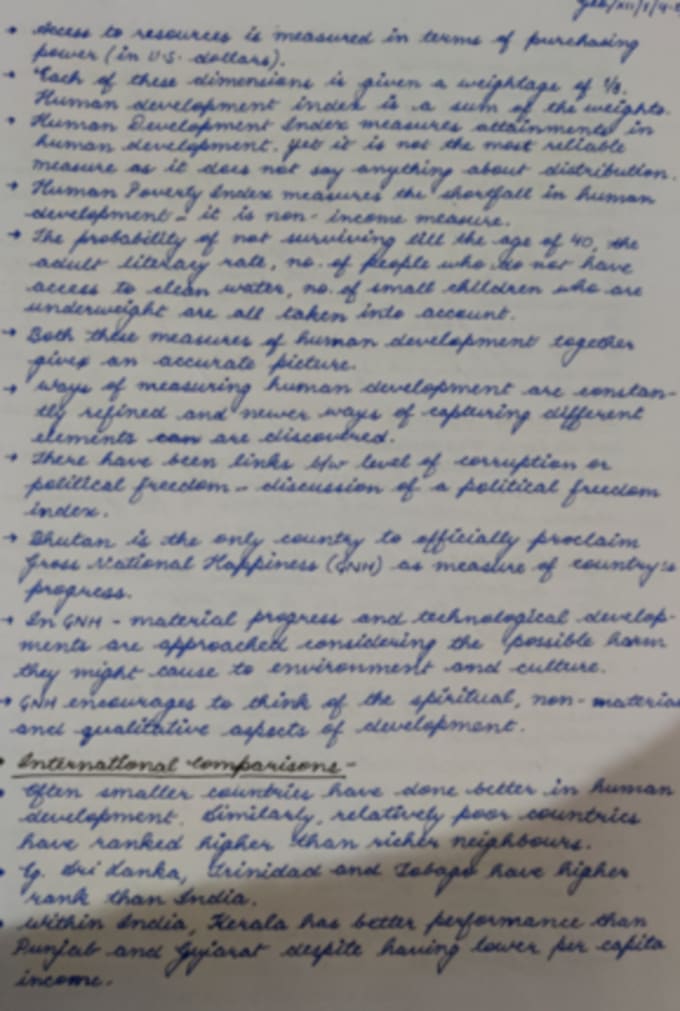 → Access to resources is measured in terms of purchasing
power (in U.S. dollars).
• Each of these dimensions is given a weightage of 1/3.
Human development index is a sum of the weights.
• Human Development Index measures attainments in
human development. Yet it is not the most reliable
measure as it does not say anything about distribution.
→ Human Poverty Index measures the shortfall in human
development - it is non-income measure.
→ The probability of not surviving till the age of 40, the
adult literacy rate, no. of people who do not have
access to clean water, no. of small children who are
underweight are all taken into account.
→ Both these measures of human development together
gives an accurate picture.
→ Ways of measuring human development are constan-
tly refined and newer ways of capturing different
elements can are discovered.
→ There have been links b/w level of corruption or
political freedom - discussion of a political freedom
index.
→ Bhutan is the only country to officially proclaim
Gross National Happiness (GNH) as measure of country's
progress.
→ In GNH - material progress and technological develop-
ments are approached considering the possible harm
they might cause to environment and culture.
→ GNH encourages to think of the spiritual, non-material
and qualitative aspects of development.
• International Comparisons -
• Often smaller countries have done better in human
development. Similarly, relatively poor countries
have ranked higher than richer neighbours.
• Eg. Sri Lanka, Trinidad and Tobago have higher
rank than India.
• Within India, Kerala has better performance than
Punjab and Gujarat despite having lower per capita
income.